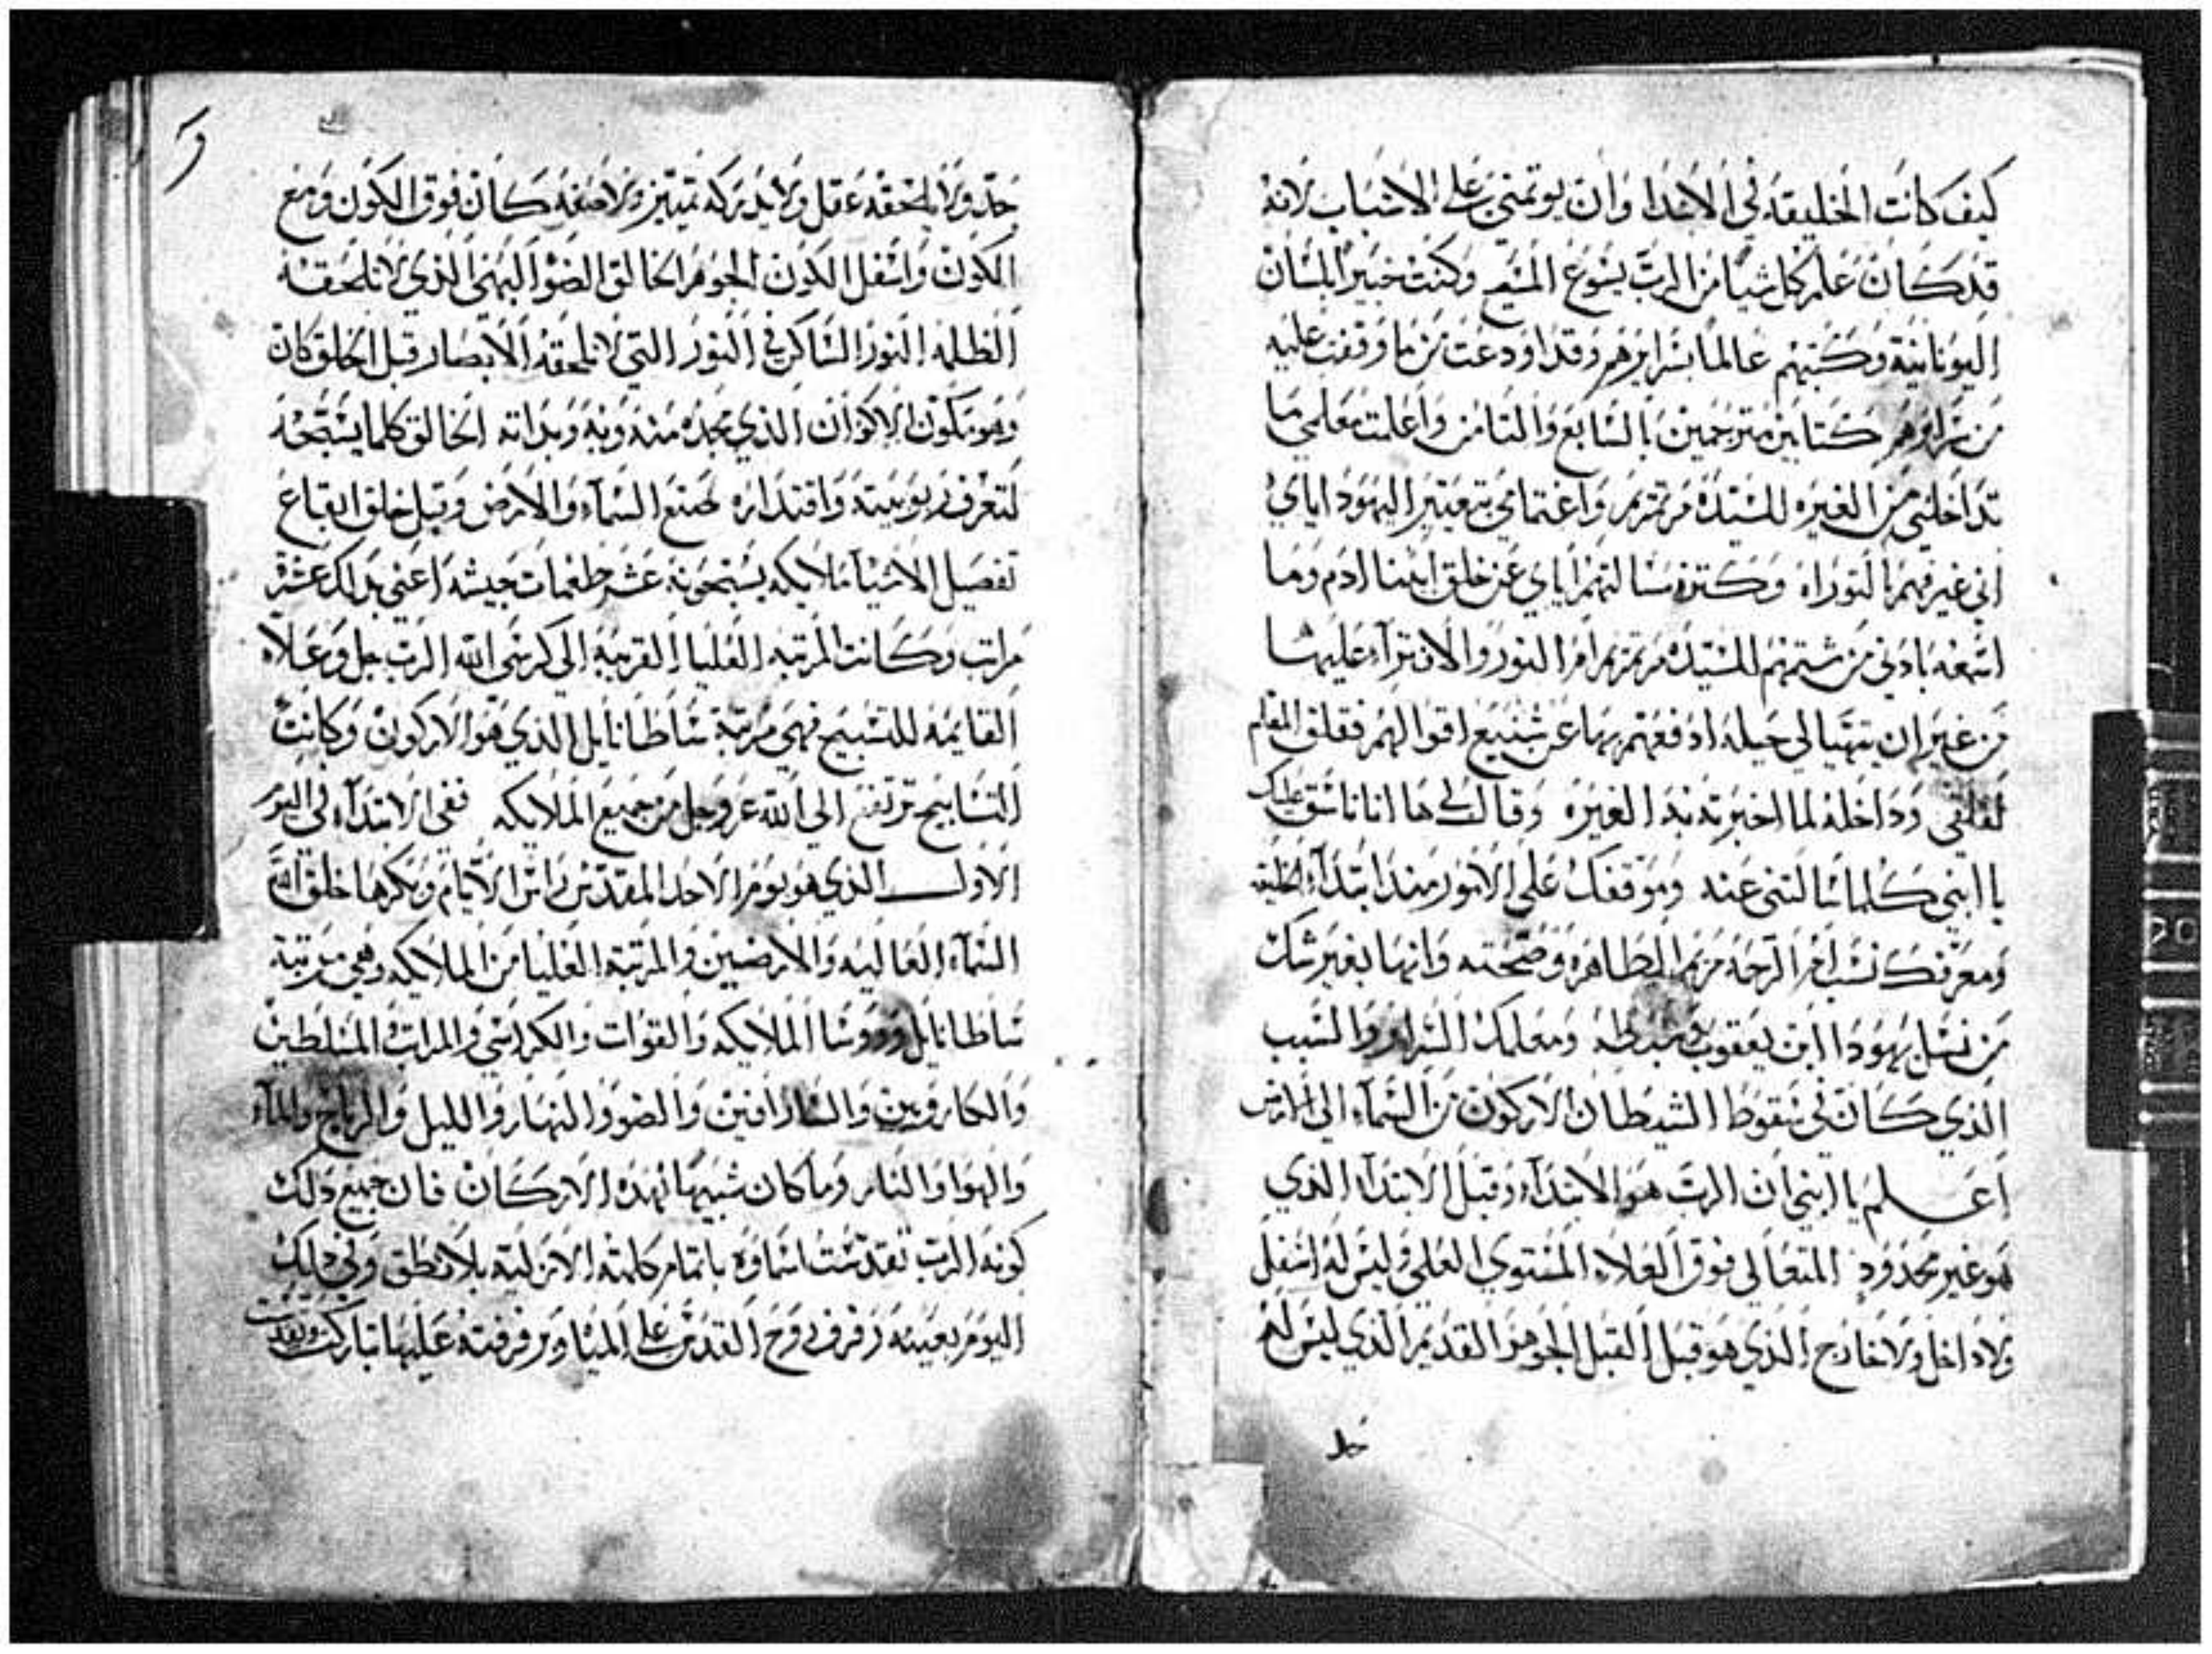 كيف كانت الخليقه في الابتدا وان يوتمني على الاسباب لانه
قد كان علم كل شيا من الرب يسوع المسيح وكنت خبير بلسان
اليونانية وكتبهم عالما بسرايرهم وقد اودعت من ما وقفت عليه
من سراوهم كتابين مترجمين بالسابع والثامن واعلمت معلمي ما
تداخلني من الغيره للسيدة مرتمريم واغتمامي بتعيير اليهود اياي
اني غير فهم بالتوراه وكثرة مسالتهم اياي عن خلق ابينا ادم وما
اسمعه باذني من شتمهم للسيدة مرتمريم ام النور والافتراء عليها
من غير ان يتهيا لي حيله ادفعهم بها عن شنيع اقوالهم فقلق المعلم
لقلقي وداخله لما اخبرته بذه الغيره وقال لي ها انا ناسق لك
يا ابني كلما سالتني عنه وموقفك على الامور منذ ابتداء الخليقه
ومعرفك نسب ام الرحمة مريم الطاهره وصحته وانها بغير شك
من نسل يهودا ابن يعقوب وسبطه ومعلمك السراير والسبب
الذي كان في سقوط الشيطان الاركون من السماء الى الارض
اعلم يا ابني ان الرب هو الابتداء وقبل الابتداء الذي
هو غير محدود المتعالي فوق العلاء المستوي العلي وليس له اسفل
ولا داخل ولا خارج الذي هو قبل القبل الجوهر القديم الذي ليس له
حد
حد ولا يلحقه عقل ولا يدركه تمييز ولا صفه كان فوق الكون ومع
الكون واسفل الكون الجوهر الخالق الضو البهي الذي لا تلحقه
الظلمه النور الساكن في النور التي لا تلحقه الابصار قبل الخلق كان
وهو مكون الاكوان الذي مجده منه وبه وبذاته الخالق كلما يسبحه
لتعرف ربوبيته واقتداره لصنع السماء والارض وقبل خلق ايقاع
تفصيل الاشيا ملايكه يسبحونه عشر طغمات جيشه اعني بذلك عشرة
مراتب وكانت المرتبه العليا القريبه الى كرسي الله الرب جل وعلاه
القايمه للتسبيح فهي مرتبة ساطانايل الذي هو الاركون وكانت
التسابيح ترتفع الى الله عز وجل من جميع الملايكه ففي الابتداء في اليوم
الاول الذي هو يوم الاحد المقدس راس الايام وبكرها خلق الله
السماء العاليه والارضين والمرتبة العليا من الملايكه وهي مرتبة
ساطانايل وروسا الملايكه والقوات والكراسي والمراتب المسلطين
والكاروبين والسارافين والضو والنهار والليل والرياح والماء
والهوا والنار وما كان شبيها بهذه الاركان فان جميع ذلك
كونه الرب تقدست اسماوه باتمام كلمته الازلية بلا نطق وفي ذلك
اليوم بعينه رفرف روح القدس على المياه وبرفرفته عليها تباركت وتقدست